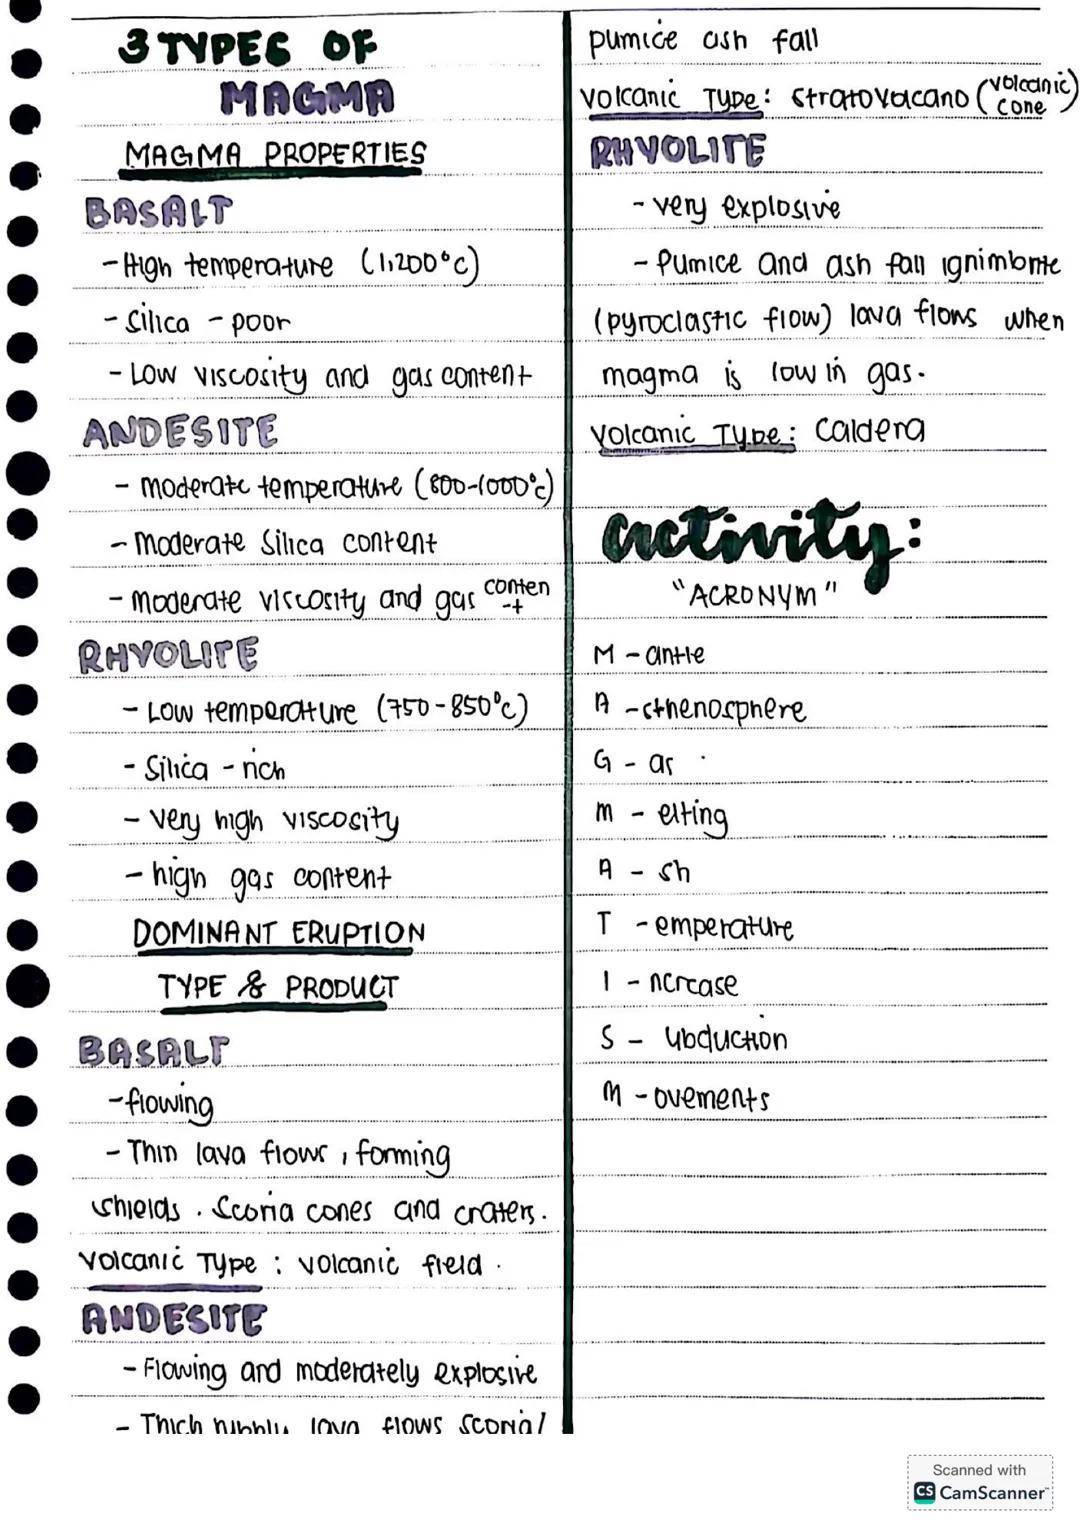 3 TYPES OF
MAGMA
MAGMA PROPERTIES
BASALT
- High temperature (1,200°c)
- Silica - poor
- Low viscosity and gas content
ANDESITE
- moderate temperature (800-1000°c)
- Moderate Silica content
- moderate viscosity and gas conten
-t
RHYOLITE
- Low temperature (750-850°c)
- Silica - rich
- very high viscosity
- high gas content
DOMINANT ERUPTION
TYPE & PRODUCT
BASALT
- flowing
- Thin lava flows, forming
shields. Scoria cones and craters.
Volcanic Type: volcanic field.
ANDESITE
- Flowing and moderately explosive
- Thick rubbly lava flows scoria/
pumice ash fall
Volcanic Type: stratovacano (volcanic
cone)
RHYOLITE
- very explosive
- Pumice and ash fall ignimbrite
(pyroclastic flow) lava flows when
magma is low in gas.
Volcanic Type: Caldera
activity:
"ACRONYM"
M - antle
A - sthenosphere
G - as
M - elting
A - sh
T - emperature
I - ncrease
S - ubduction
M - ovements
Scanned with
CS CamScanner